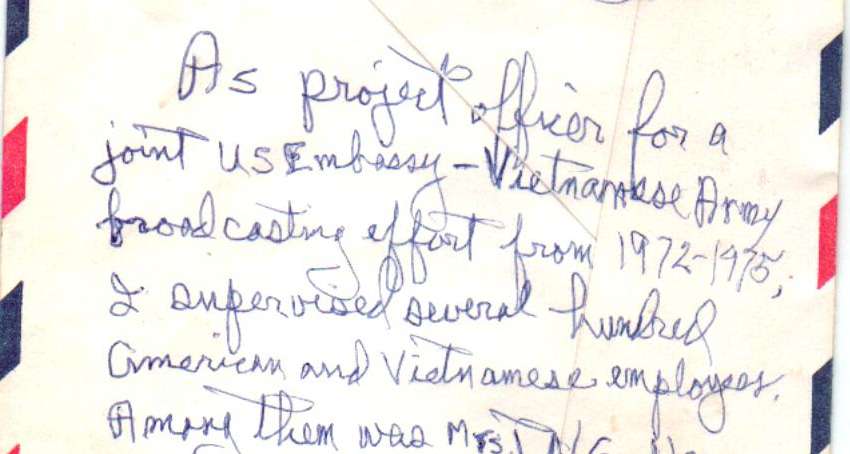 As project officer for a
joint US Embassy - Vietnamese Army
broadcasting effort from 1972-1975,
I supervised several hundred
American and Vietnamese employees.
Among them was Mrs.